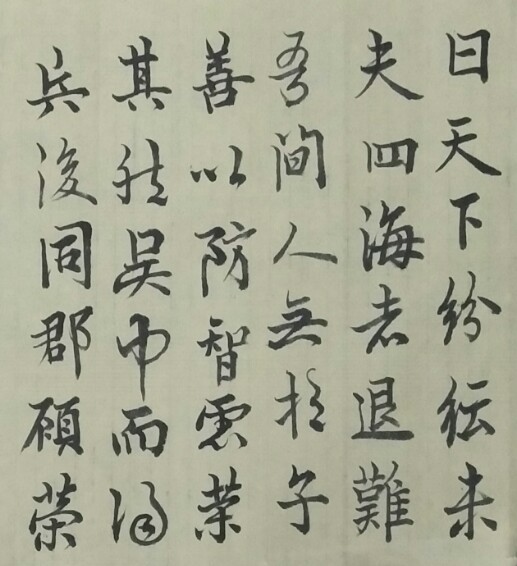 曰天下紛紜未
夫四海者退難
吾間人無於子
善以防智慮榮
其然吳中而得
兵後同郡顧榮